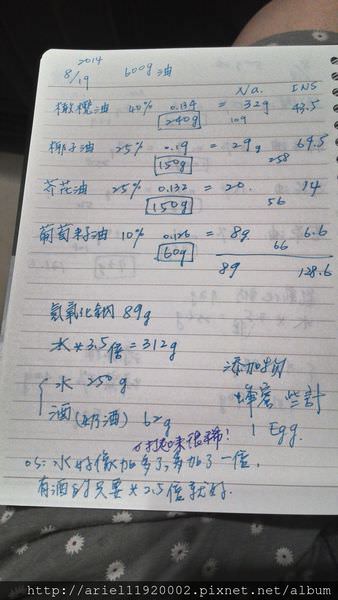 2014
8/19 600g 油
Na. INS
橄欖油 40% 0.134 = 32g 43.5
240g 109
椰子油 25% 0.19 = 29g 64.5
150g 258
芥花油 25% 0.132 = 20. 14
150g 56
葡萄籽油 10% 0.126 = 8g 6.6
60g 66
89 128.6
氫氧化鈉 89g
水*3.5倍=312g
水 250g
酒(奶酒) 62g
添加物
蜂蜜 些許
1 Egg.
打起來很稀!
OS: 水好像加多了,多加了一倍,
有酒的只要*2.5倍就好.
http://ariel11920002.pixnet.net/album